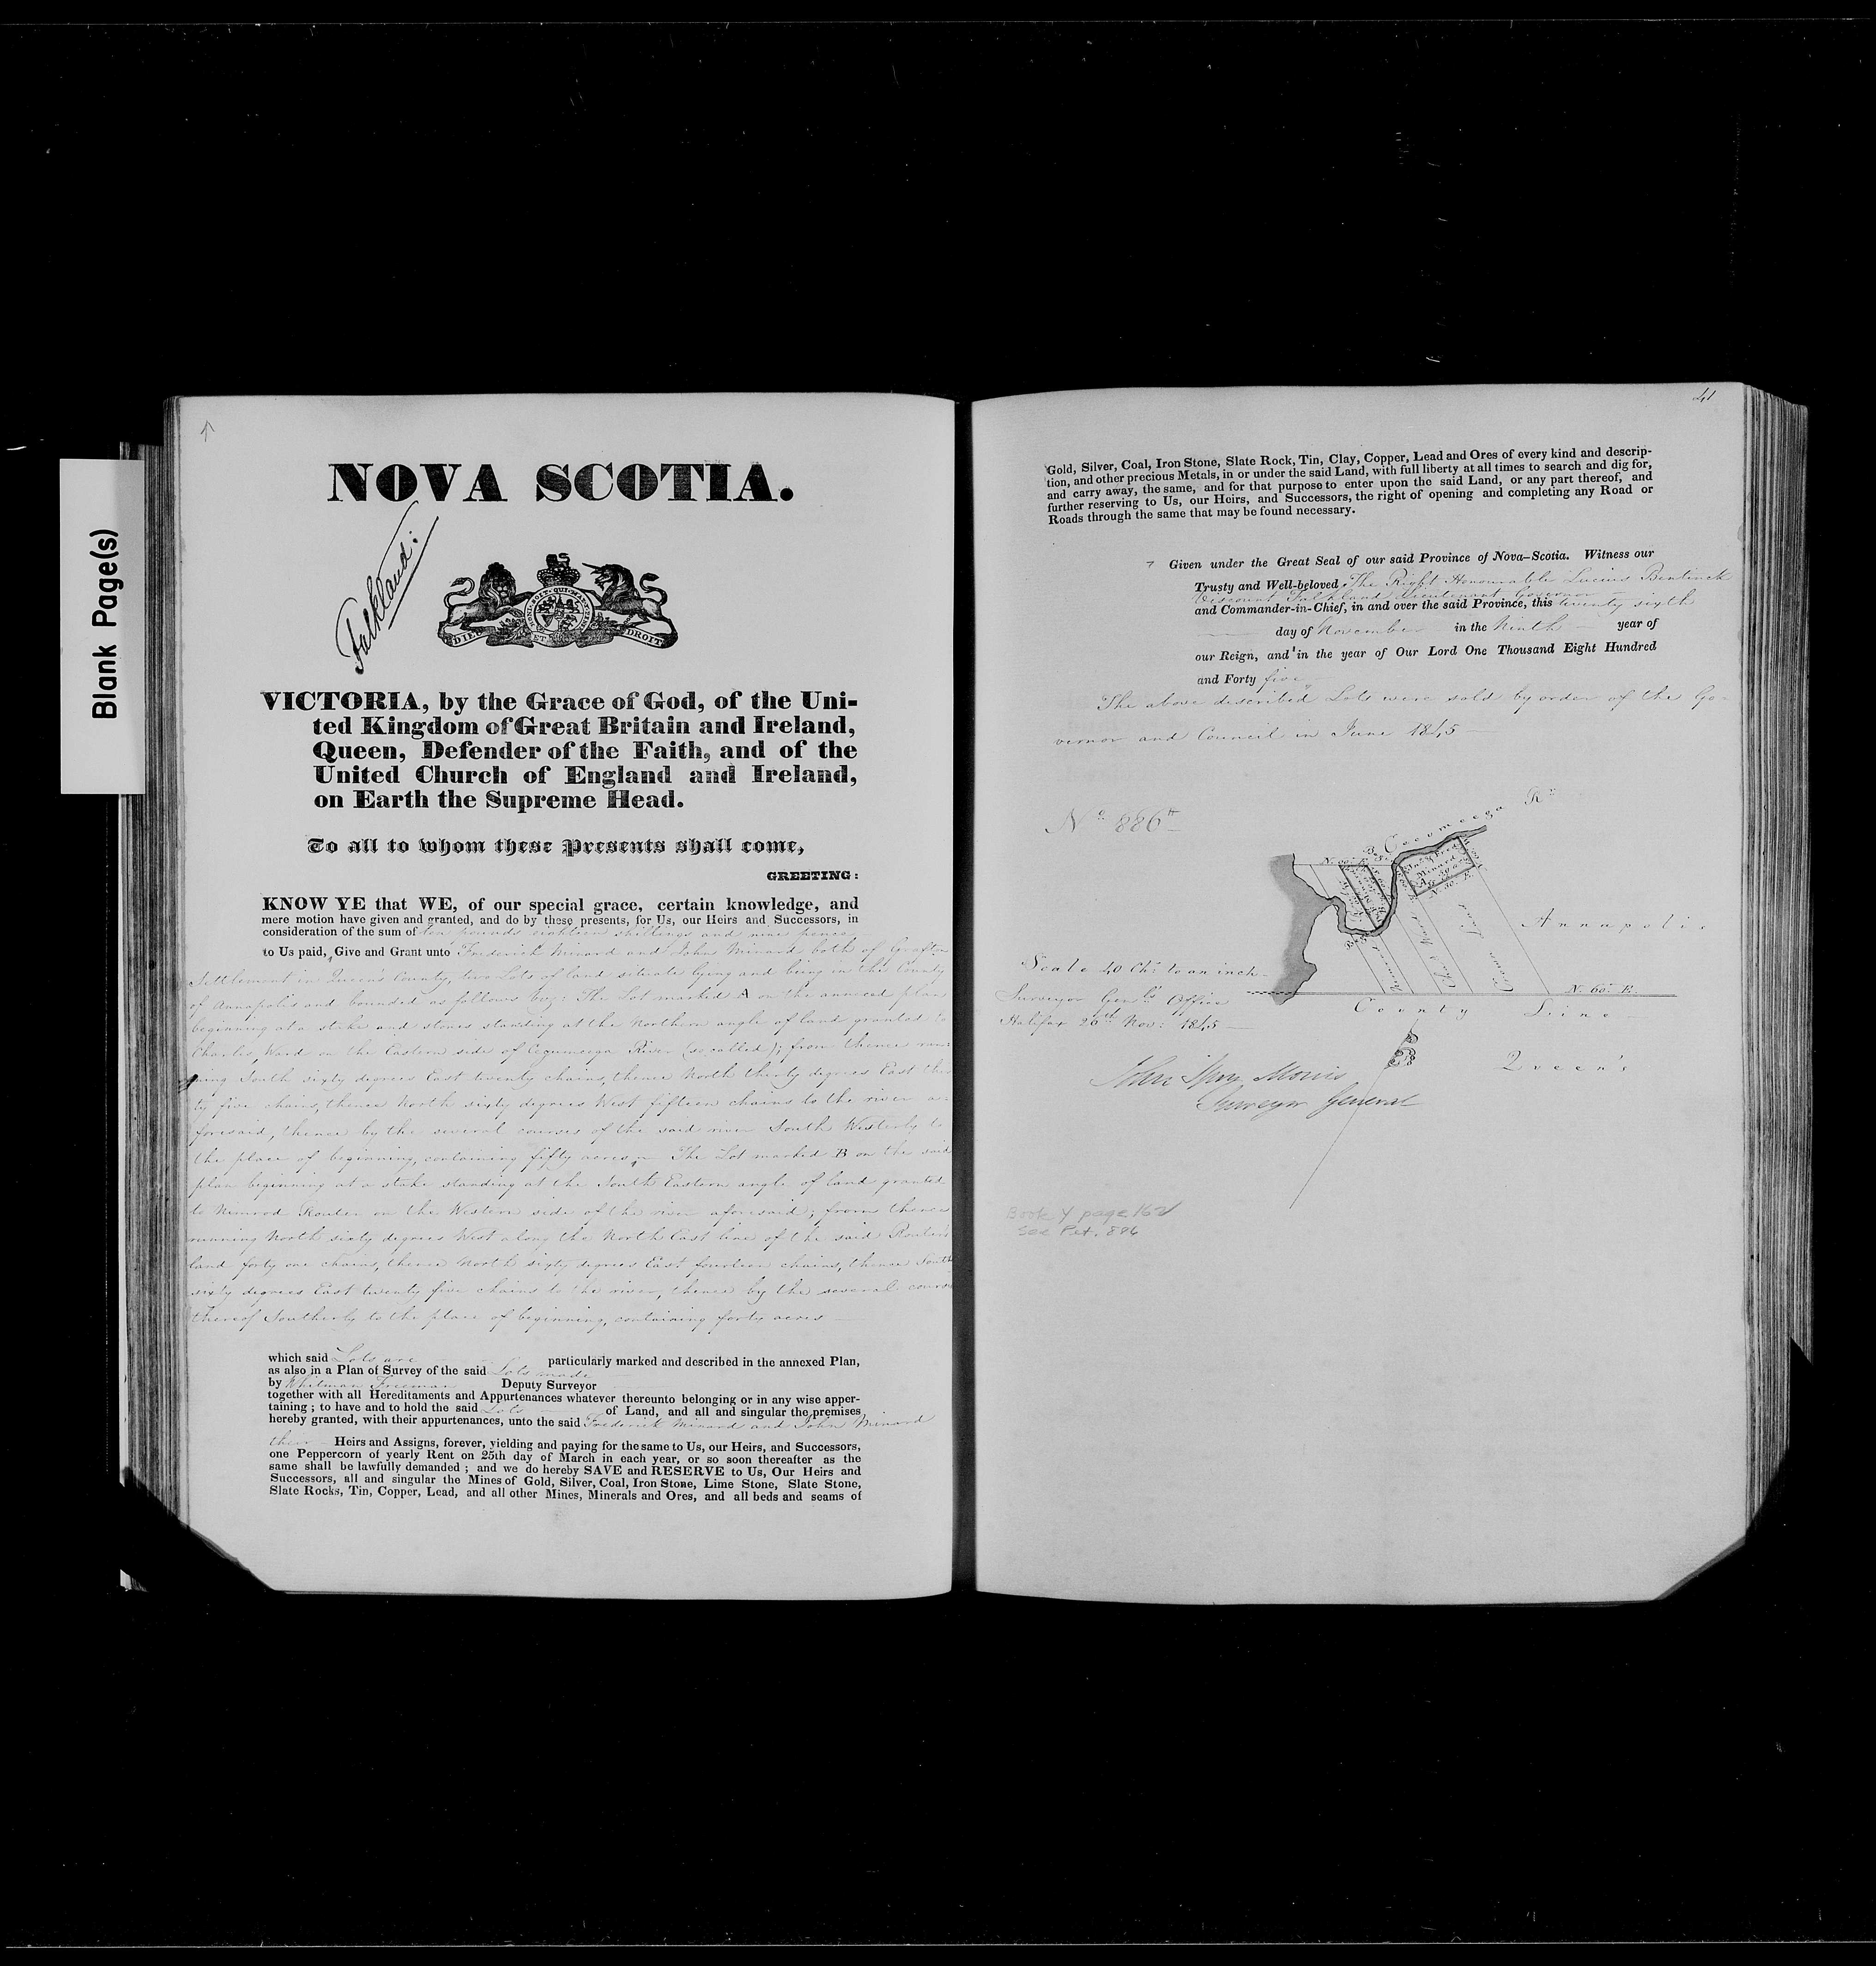 Blank Page(s)
NOVA SCOTIA.
Falkland:
DIEU ET DROIT
HONI·SOIT·QUI·MAL
VICTORIA, by the Grace of God, of the Uni-
ted Kingdom of Great Britain and Ireland,
Queen, Defender of the Faith, and of the
United Church of England and Ireland,
on Earth the Supreme Head.
To all to whom these Presents shall come,
GREETING:
KNOW YE that WE, of our special grace, certain knowledge, and
mere motion have given and granted, and do by these presents, for Us, our Heirs and Successors, in
consideration of the sum of ten pounds eighteen shillings and nine pence
to Us paid, Give and Grant unto Frederick Minard and John Minard both of Grafton
Settlement in Queen's County, two Lots of land situate lying and being in the County
of Annapolis and bounded as follows viz: The Lot marked A on the annexed plan
beginning at a stake and stones standing at the Northern angle of land granted to
Charles Ward on the Eastern side of River (so called); from thence run-
ning South sixty degrees East twenty chains, thence North thirty degrees East thir-
ty five chains, thence North sixty degrees West fifteen chains to the river a-
foresaid, thence by the several courses of the said river South Westerly to
the place of beginning, containing fifty acres The Lot marked B on the said
plan beginning at a stake standing at the South Eastern angle of land granted
to Nimrod Router on the Western side of the river aforesaid; from thence
running North sixty degrees West along the North East line of the said Router's
land forty one chains, thence North sixty degrees East fourteen chains, thence South
sixty degrees East twenty five chains to the river, thence by the several courses
thereof Southerly to the place of beginning, containing forty acres
which said Lots are particularly marked and described in the annexed Plan,
as also in a Plan of Survey of the said Lots made
by Whitman Freeman Deputy Surveyor
together with all Hereditaments and Appurtenances whatever thereunto belonging or in any wise apper-
taining; to have and to hold the said Lots of Land, and all and singular the premises
hereby granted, with their appurtenances, unto the said Frederick Minard and John Minard
their Heirs and Assigns, forever, yielding and paying for the same to Us, our Heirs, and Successors,
one Peppercorn of yearly Rent on 25th day of March in each year, or so soon thereafter as the
same shall be lawfully demanded; and we do hereby SAVE and RESERVE to Us, Our Heirs and
Successors, all and singular the Mines of Gold, Silver, Coal, Iron Stone, Lime Stone, Slate Stone,
Slate Rocks, Tin, Copper, Lead, and all other Mines, Minerals and Ores, and all beds and seams of
41
Gold, Silver, Coal, Iron Stone, Slate Rock, Tin, Clay, Copper, Lead and Ores of every kind and descrip-
tion, and other precious Metals, in or under the said Land, with full liberty at all times to search and dig for,
and carry away, the same, and for that purpose to enter upon the said Land, or any part thereof, and
further reserving to Us, our Heirs, and Successors, the right of opening and completing any Road or
Roads through the same that may be found necessary.
Given under the Great Seal of our said Province of Nova-Scotia. Witness our
Trusty and Well-beloved, The Right Honourable Lucius Bentinck
Viscount Falkland Lieutenant Governor
and Commander-in-Chief, in and over the said Province, this twenty sixth
day of November in the Ninth year of
our Reign, and in the year of Our Lord One Thousand Eight Hundred
and Forty five
The above described Lots were sold by order of the Go-
vernor and Council in June 1845
No. 886
Cocomeega Rr.
Minard
Annapolis
Chas. Ward
Crown Land
Scale 40 Chs. to an inch
N. 60° E.
County Line
Surveyor Genls. Office
Halifax 26th Nov: 1845
Queen's
John Spry Morris
Surveyor General
Book Y page 162
See Pet. 886